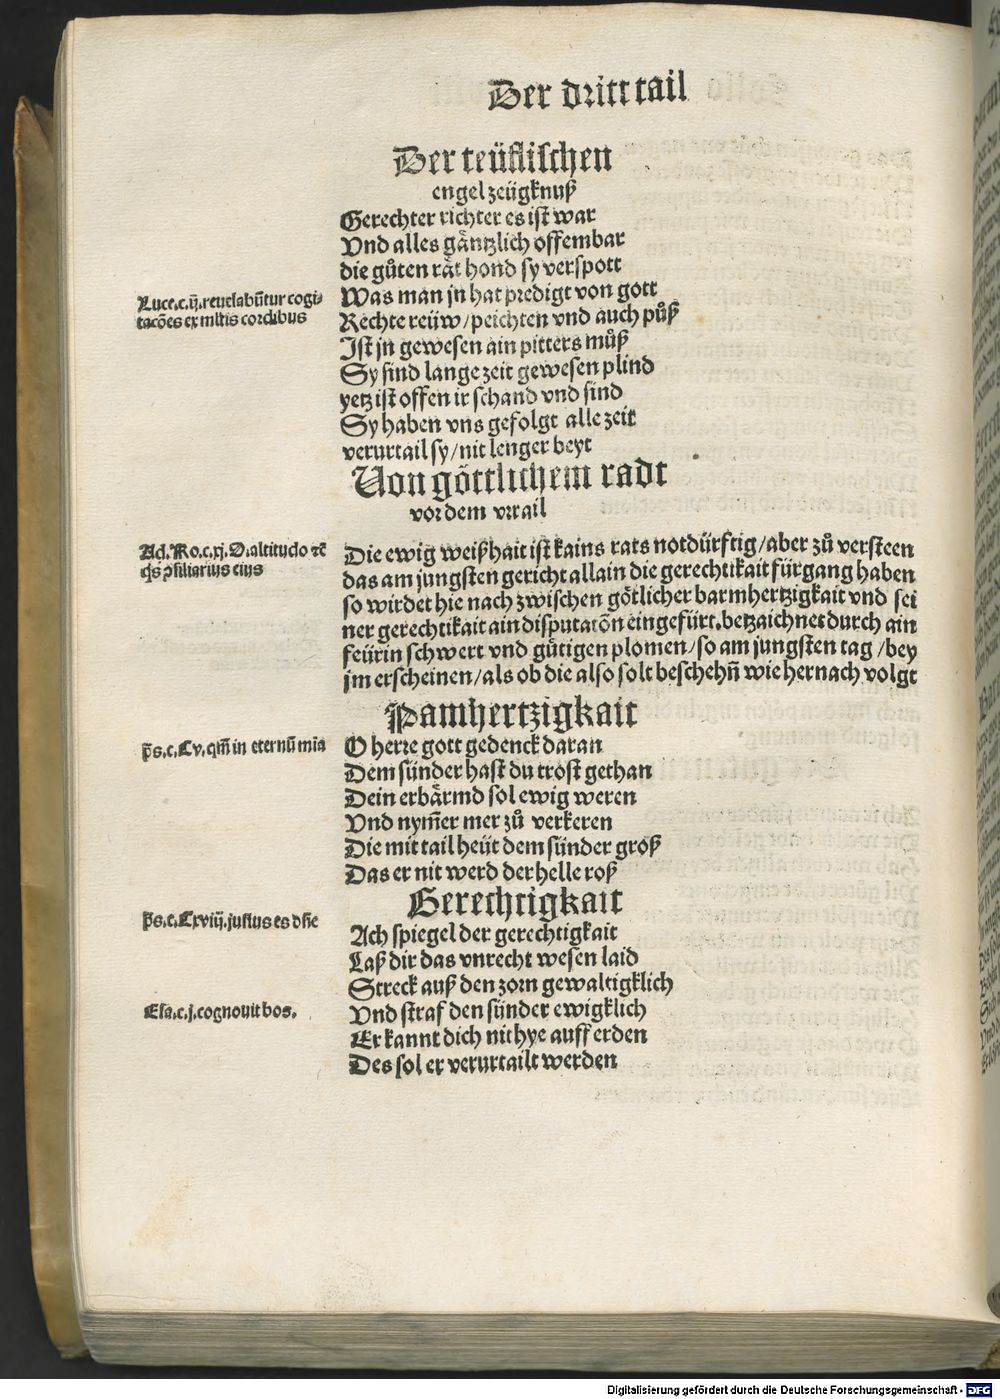 Der dritt tail
Der teüflischen
engel zeügknuß
Gerechter richter es ist war
Vnd alles gäntzlich offembar
die gůten rät hond sy verspott
Luce.c.ij.reuelabūtur cogi-
tacōes ex mltis cordibus
Was man jn hat predigt von gott
Rechte reüw/peichten vnd auch půß
Ist jn gewesen ain pitters můß
Sy sind lange zeit gewesen plind
yetz ist offen ir schand vnd sind
Sy haben vns gefolgt alle zeit
verurtail sy/nit lenger beyt
Von göttlichem radt
vor dem vrtail
Ad.Ro.c.xj.O altitudo
Die ewig weißhait ist kains rats notdürftig/aber zů versteen
das am jungsten gericht allain die gerechtikait fürgang haben
so wirdet hie nach zwischen götlicher barmhertzigkait vnd sei
ner gerechtikait ain disputatōn eingefürt.betzaichnet durch ain
feürin schwert vnd gütigen plomen/so am jungsten tag/bey
jm erscheinen/als ob die also solt beschehn̄ wie hernach volgt
Pamhertzigkait
p̄s.c.Cv.qm̄ in eternū mīa
O herre gott gedenck daran
Dem sünder hast du trost gethan
Dein erbärmd sol ewig weren
Vnd nym̄er mer zů verkeren
Die mit tail heüt dem sünder größ
Das er nit werd der helle roß
Gerechtigkait
p̄s.c.Cxviij.justus es dn̄e
Ach spiegel der gerechtigkait
Laß dir das vnrecht wesen laid
Streck auß den zorn gewaltigklich
Esa.c.j.cognouit bos.
Vnd straf den sünder ewigklich
Er kannt dich nit hye auff erden
Des sol er verurtailt werden
Digitalisierung gefördert durch die Deutsche Forschungsgemeinschaft - DFG